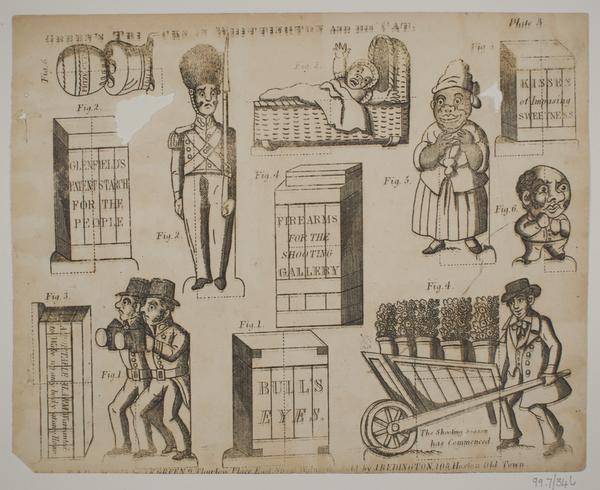 GREEN'S TRICKS IN WHITTINGTON AND HIS CAT.
Plate
Fig. 6
Fig. 2.
GLENFIELD'S
PATENT STARCH
FOR THE
PEOPLE
Fig. 2
Fig. 3.
Fig. 4
FIREARMS
FOR THE
SHOOTING
GALLERY
Fig. 5.
Fig. 5
KISSES
of Imposing
SWEETNESS
Fig. 6.
Fig. 3.
Fig. 1
Fig. 1.
BULL'S
EYES.
Fig. 4.
The Shooting Season
has Commenced
GREEN
Thurlow Place East
by J. REDINGTON, 208, Hoxton Old Town
99.7/346